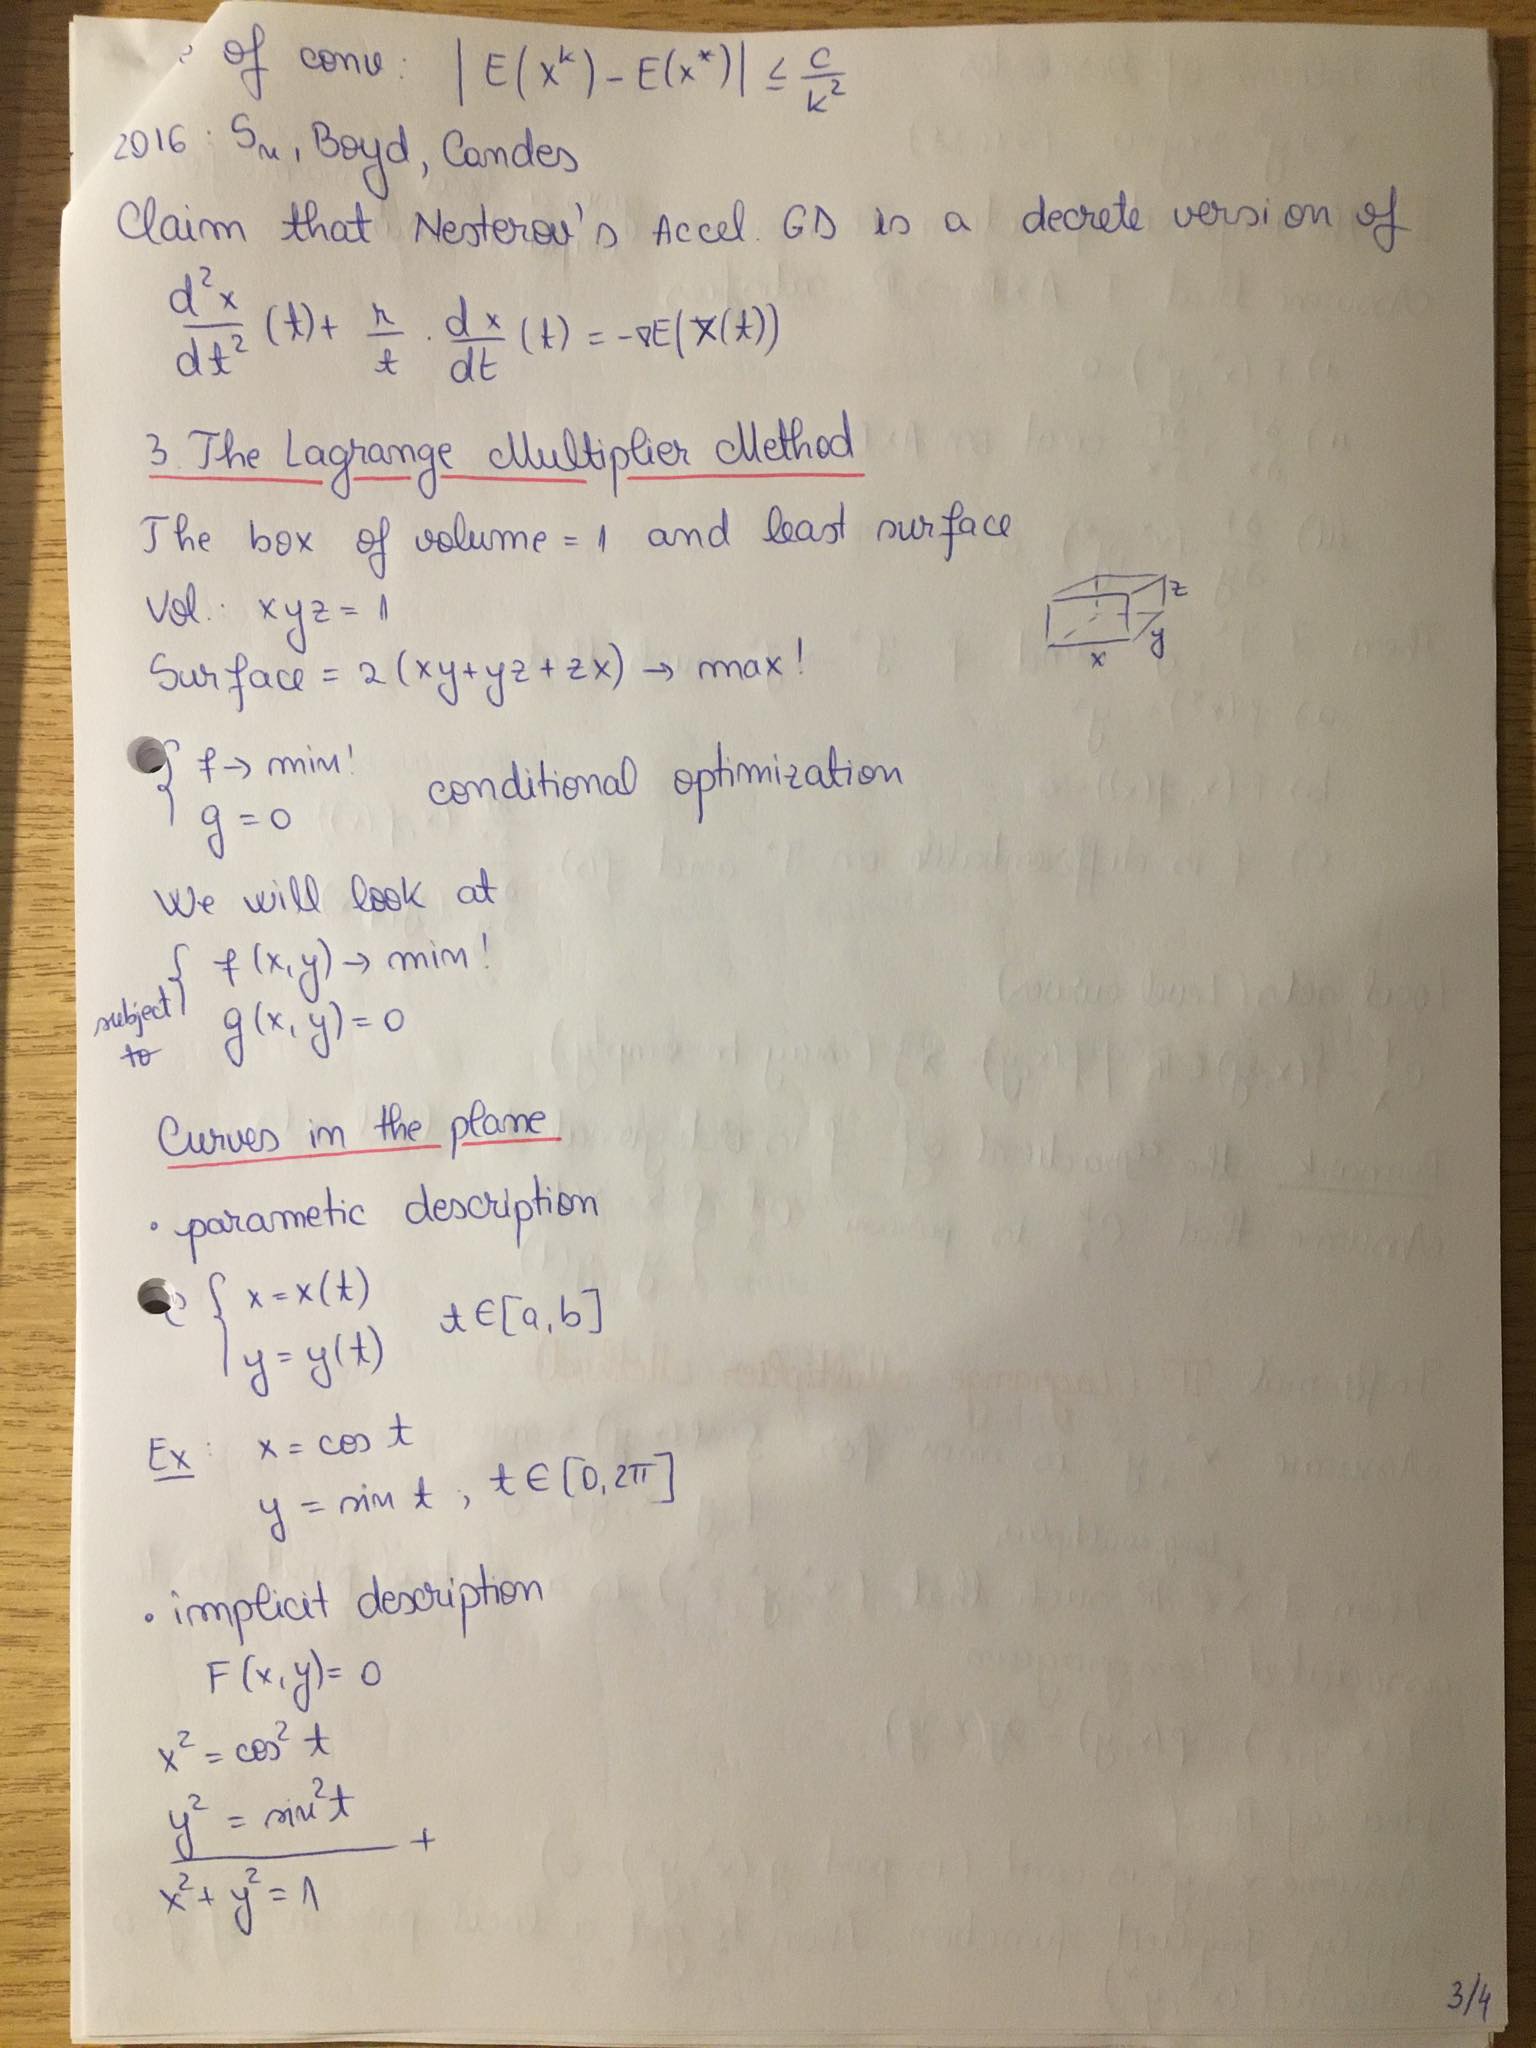 of conv: |E(x^k) - E(x^*)| ≤ c/k^2
2016: Su, Boyd, Candes
Claim that Nesterov's Accel. GD is a decrete version of
d^2x/dt^2 (t) + r/t · dx/dt (t) = -∇E(X(t))
3. The Lagrange Multiplier Method
The box of volume = 1 and least surface
Vol.: xyz = 1
x y z
Surface = 2(xy+yz+zx) → max!
{ f → min!
g = 0
conditional optimization
We will look at
{ f(x,y) → min!
subject to g(x,y) = 0
Curves in the plane
· parametic description
{ x = x(t)
y = y(t)
t ∈ [a,b]
Ex: x = cos t
y = sin t, t ∈ [0, 2π]
· implicit description
F(x,y) = 0
x^2 = cos^2 t
y^2 = sin^2 t
+
x^2 + y^2 = 1
3/4